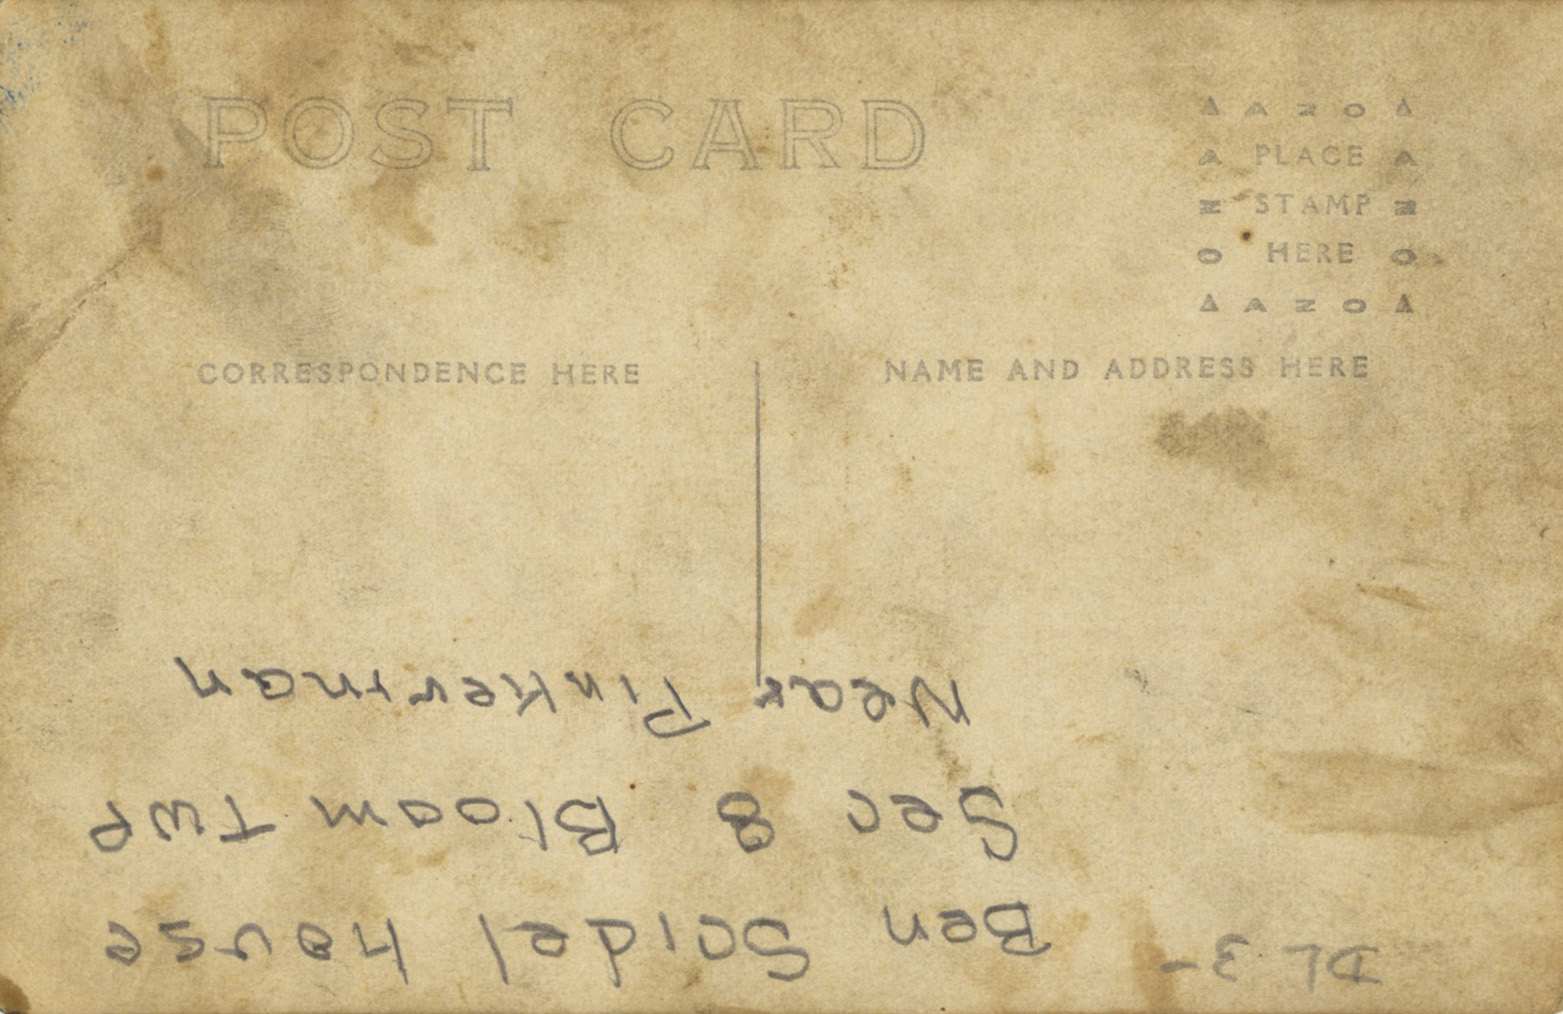 POST CARD
A Z O
PLACE
STAMP
HERE
A Z O
CORRESPONDENCE HERE
NAME AND ADDRESS HERE
DL 3-
Ben Scidel house
Sec 8 Bloom Twp
Near Pinkerman